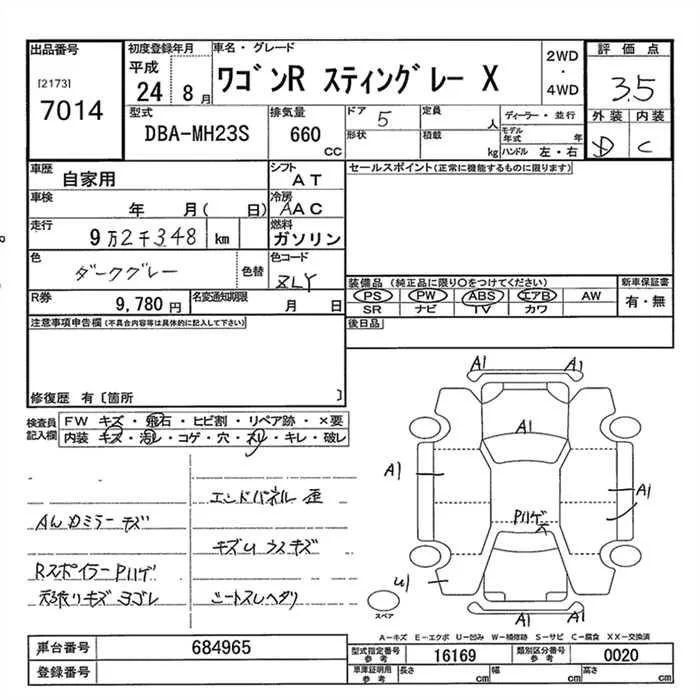 出品番号
[2173]
7014
初度登録年月
平成
24 8月
車名・グレード
ワゴンR スティングレー X
2WD
・
4WD
評価点
3.5
外装 内装
D C
型式
DBA-MH23S
排気量
660
CC
ドア
5
形状
定員
人
積載
kg
ディーラー・並行
モデル年式 年
ハンドル 左・右
車歴
自家用
シフト
AT
車検
年 月( 日)
冷房
AAC
走行
9万2千348 km
燃料
ガソリン
色
ダークグレー
色替
色コード
ZLY
R券
9,780円
名変通知期限
月 日
セールスポイント(正常に機能するものに限ります)
装備品 (純正品に限り○をつけてください)
PS PW ABS エアB AW
SR ナビ TV カワ
新車保証書
有・無
後日品
注意事項申告欄(不具合内容等は具体的に記入して下さい)
修復歴 有〔箇所 〕
検査員記入欄
FW キズ・飛石・ヒビ割・リペア跡・×要
内装 キズ・汚レ・コゲ・穴・スレ・キレ・破レ
エンドパネル 歪
Aムカミラー キズ
キズU ウスキズ
Rスポイラー Pハゲ
天張りキズ ヨゴレ
シートスレ ヘタリ
A1 A1
A1
A1
A1
Pハゲ
U1
A1 A1
スペア
A-キズ E-エクボ U-凹み W-補修跡 S-サビ C-腐食 XX-交換済
車台番号
684965
登録番号
型式指定番号
参考
16169
類別区分番号
参考
0020
車庫証明用
参考
長さ cm
幅 cm
高さ cm